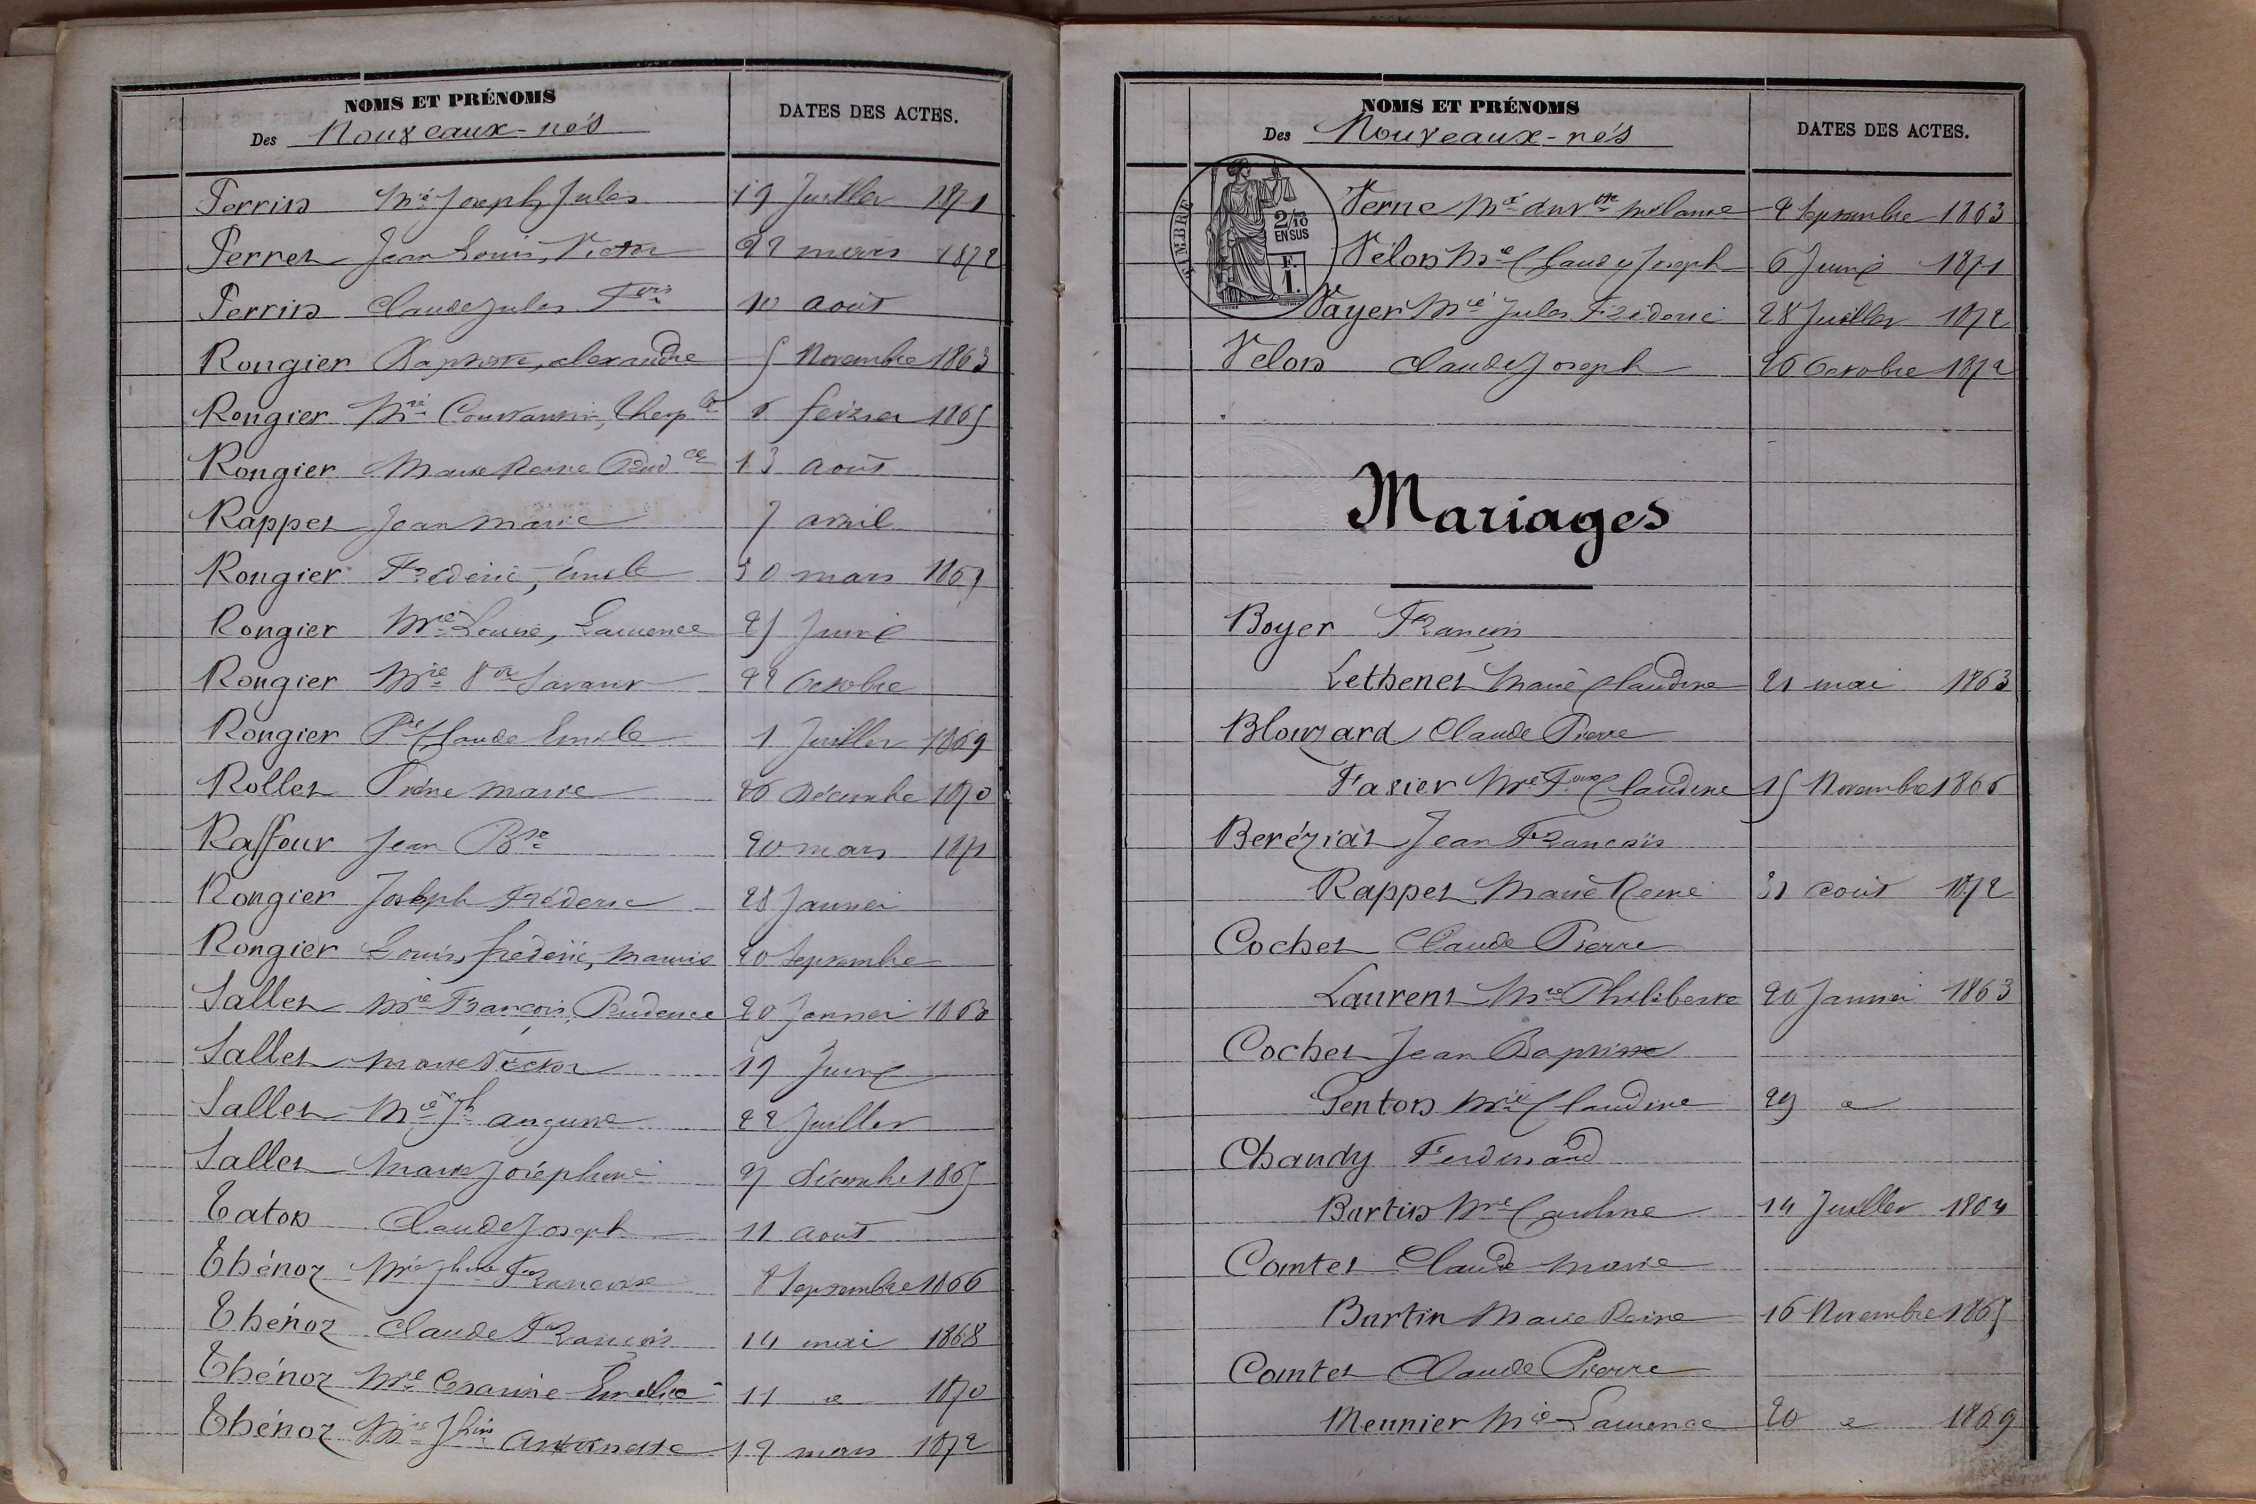 NOMS ET PRÉNOMS
Des Nouveaux-nés
DATES DES ACTES.
Perrin Mie Joseph Jules 19 Juillet 1871
Perret Jean Louis, Victor 22 mars 1872
Perrin Claude Jules Fçois 10 août
Rongier Baptiste, alexandre 5 Novembre 1863
Rongier Mie Constantin, 6 fevrier 1865
Rongier Marie Reine Prudce 13 août
Rappet Jean marie 7 avril
Rongier Frédéric, Emile 30 mars 1867
Rongier Mie Louise, Laurence 25 Juin
Rongier Mie 22 Octobre
Rongier Pre Claude Emile 1 Juillet 1869
Rollet Pierre marie 26 Décembre 1870
Raffour Jean Bte 20 mars 1871
Rongier Joseph Fréderic 28 Janvier
Rongier Louis, fréderic, marius 20 Septembre
Sallet Mie François Prudence 20 Janvier 1863
Sallet marie Victor 19 Juin
Sallet Mie Jh augustine 22 Juillet
Sallet Marie Joséphine 27 décembre 1865
Taton Claude Joseph 11 aout
Thénoz Mie Jhine Françoise 8 Septembre 1866
Thénoz Claude François 14 mai 1868
Thénoz Mie Emélie 11 1870
Thénoz Mie Jhine Antoinette 12 mars 1872
NOMS ET PRÉNOMS
Des Nouveaux-nés
DATES DES ACTES.
TIMBRE
2/10
EN SUS
F.
1.
Verne Mie melanie 2 Septembre 1863
Vélon Mie Claude Joseph 6 Juin 1871
Vayer Mie Jules Fréderic 28 Juillet 1872
Velon Claude Joseph 26 Octobre 1872
Mariages
Boyer François
Lethenet Marie Claudine 21 mai 1863
Blouzard Claude Pierre
Fasier Mie Fçoise Claudine 15 Novembre 1866
Beréziat Jean François
Rappet Marie Reine 31 août 1872
Cochet Claude Pierre
Laurent Mie Philiberte 20 Janvier 1863
Cochet Jean Baptiste
Penton Mie Claudine 29
Chandy Ferdinand
Burtin Mie Caroline 14 Juillet 1864
Comtet Claude Marie
Burtin Marie Reine 16 Novembre 1865
Comtet Claude Pierre
Meunier Mie Laurence 20 1869